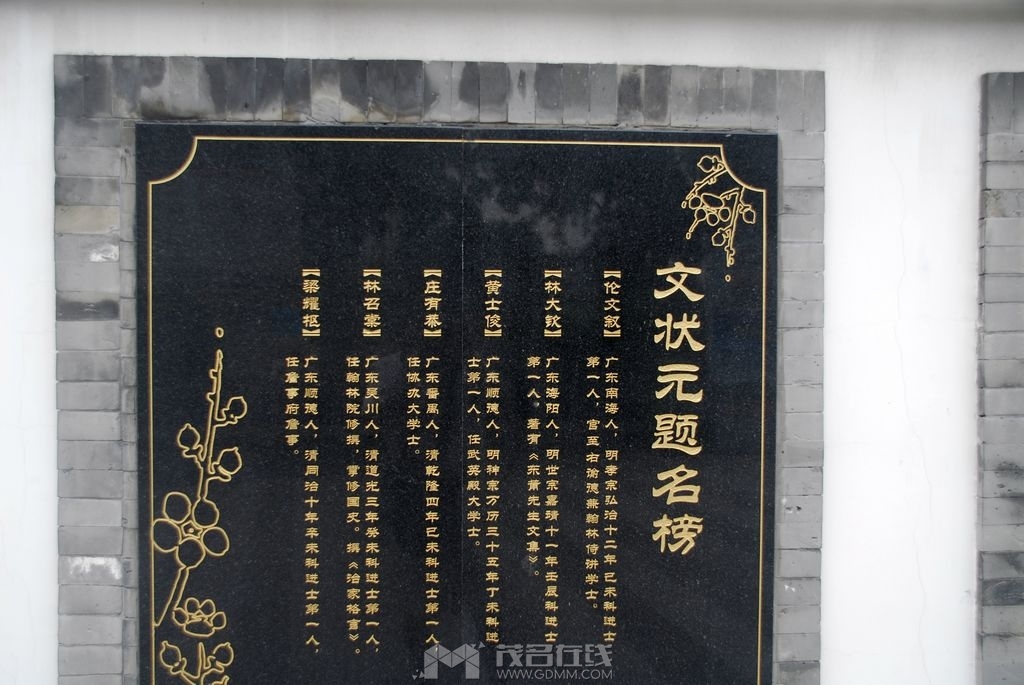 文状元题名榜
【伦文叙】
广东南海人，明孝宗弘治十二年己未科进士
第一人，官至右谕德兼翰林侍讲学士。
【林大钦】
广东海阳人，明世宗嘉靖十一年壬辰科进士
第一人。著有《东莆先生文集》。
【黄士俊】
广东顺德人，明神宗万历三十五年丁未科进
士第一人，任武英殿大学士。
【庄有恭】
广东番禺人，清乾隆四年己未科进士第一人
任协办大学士。
【林召棠】
广东吴川人，清道光三年癸未科进士第一人，
任翰林院修撰，掌修国史。撰《治家格言》。
【梁耀枢】
广东顺德人，清同治十年辛未科进士第一人，
任詹事府詹事。
茂名在线
WWW.GDMM.COM